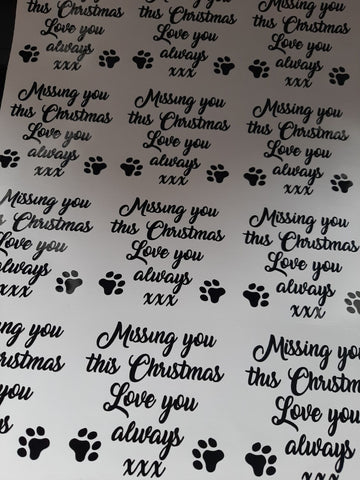 this Christmas
Love you
always
xxx
this Christmas
Love you
always
xxx
Missing you
this Christmas
Love you
always
xxx
Missing you
this Christmas
Love you
always
xxx
Missing you
this Christmas
Love you
always
xxx
Missing you
this Christmas
Love you
always
xxx
Missing you
Christmas
Love you
always
xxx
Missing you
this Christmas
Love you
always
xxx
Missing you
this Christmas
Love you
always
xxx
you
you
Missing you
this Christmas
Love you
always
xxx
Missing you
this
Love you
always
xxx